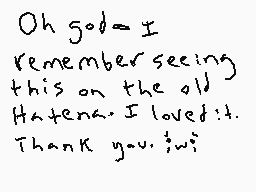 Oh god- I
remember seeing
this on the old
Hatena. I loved it.
Thank you. ;w;